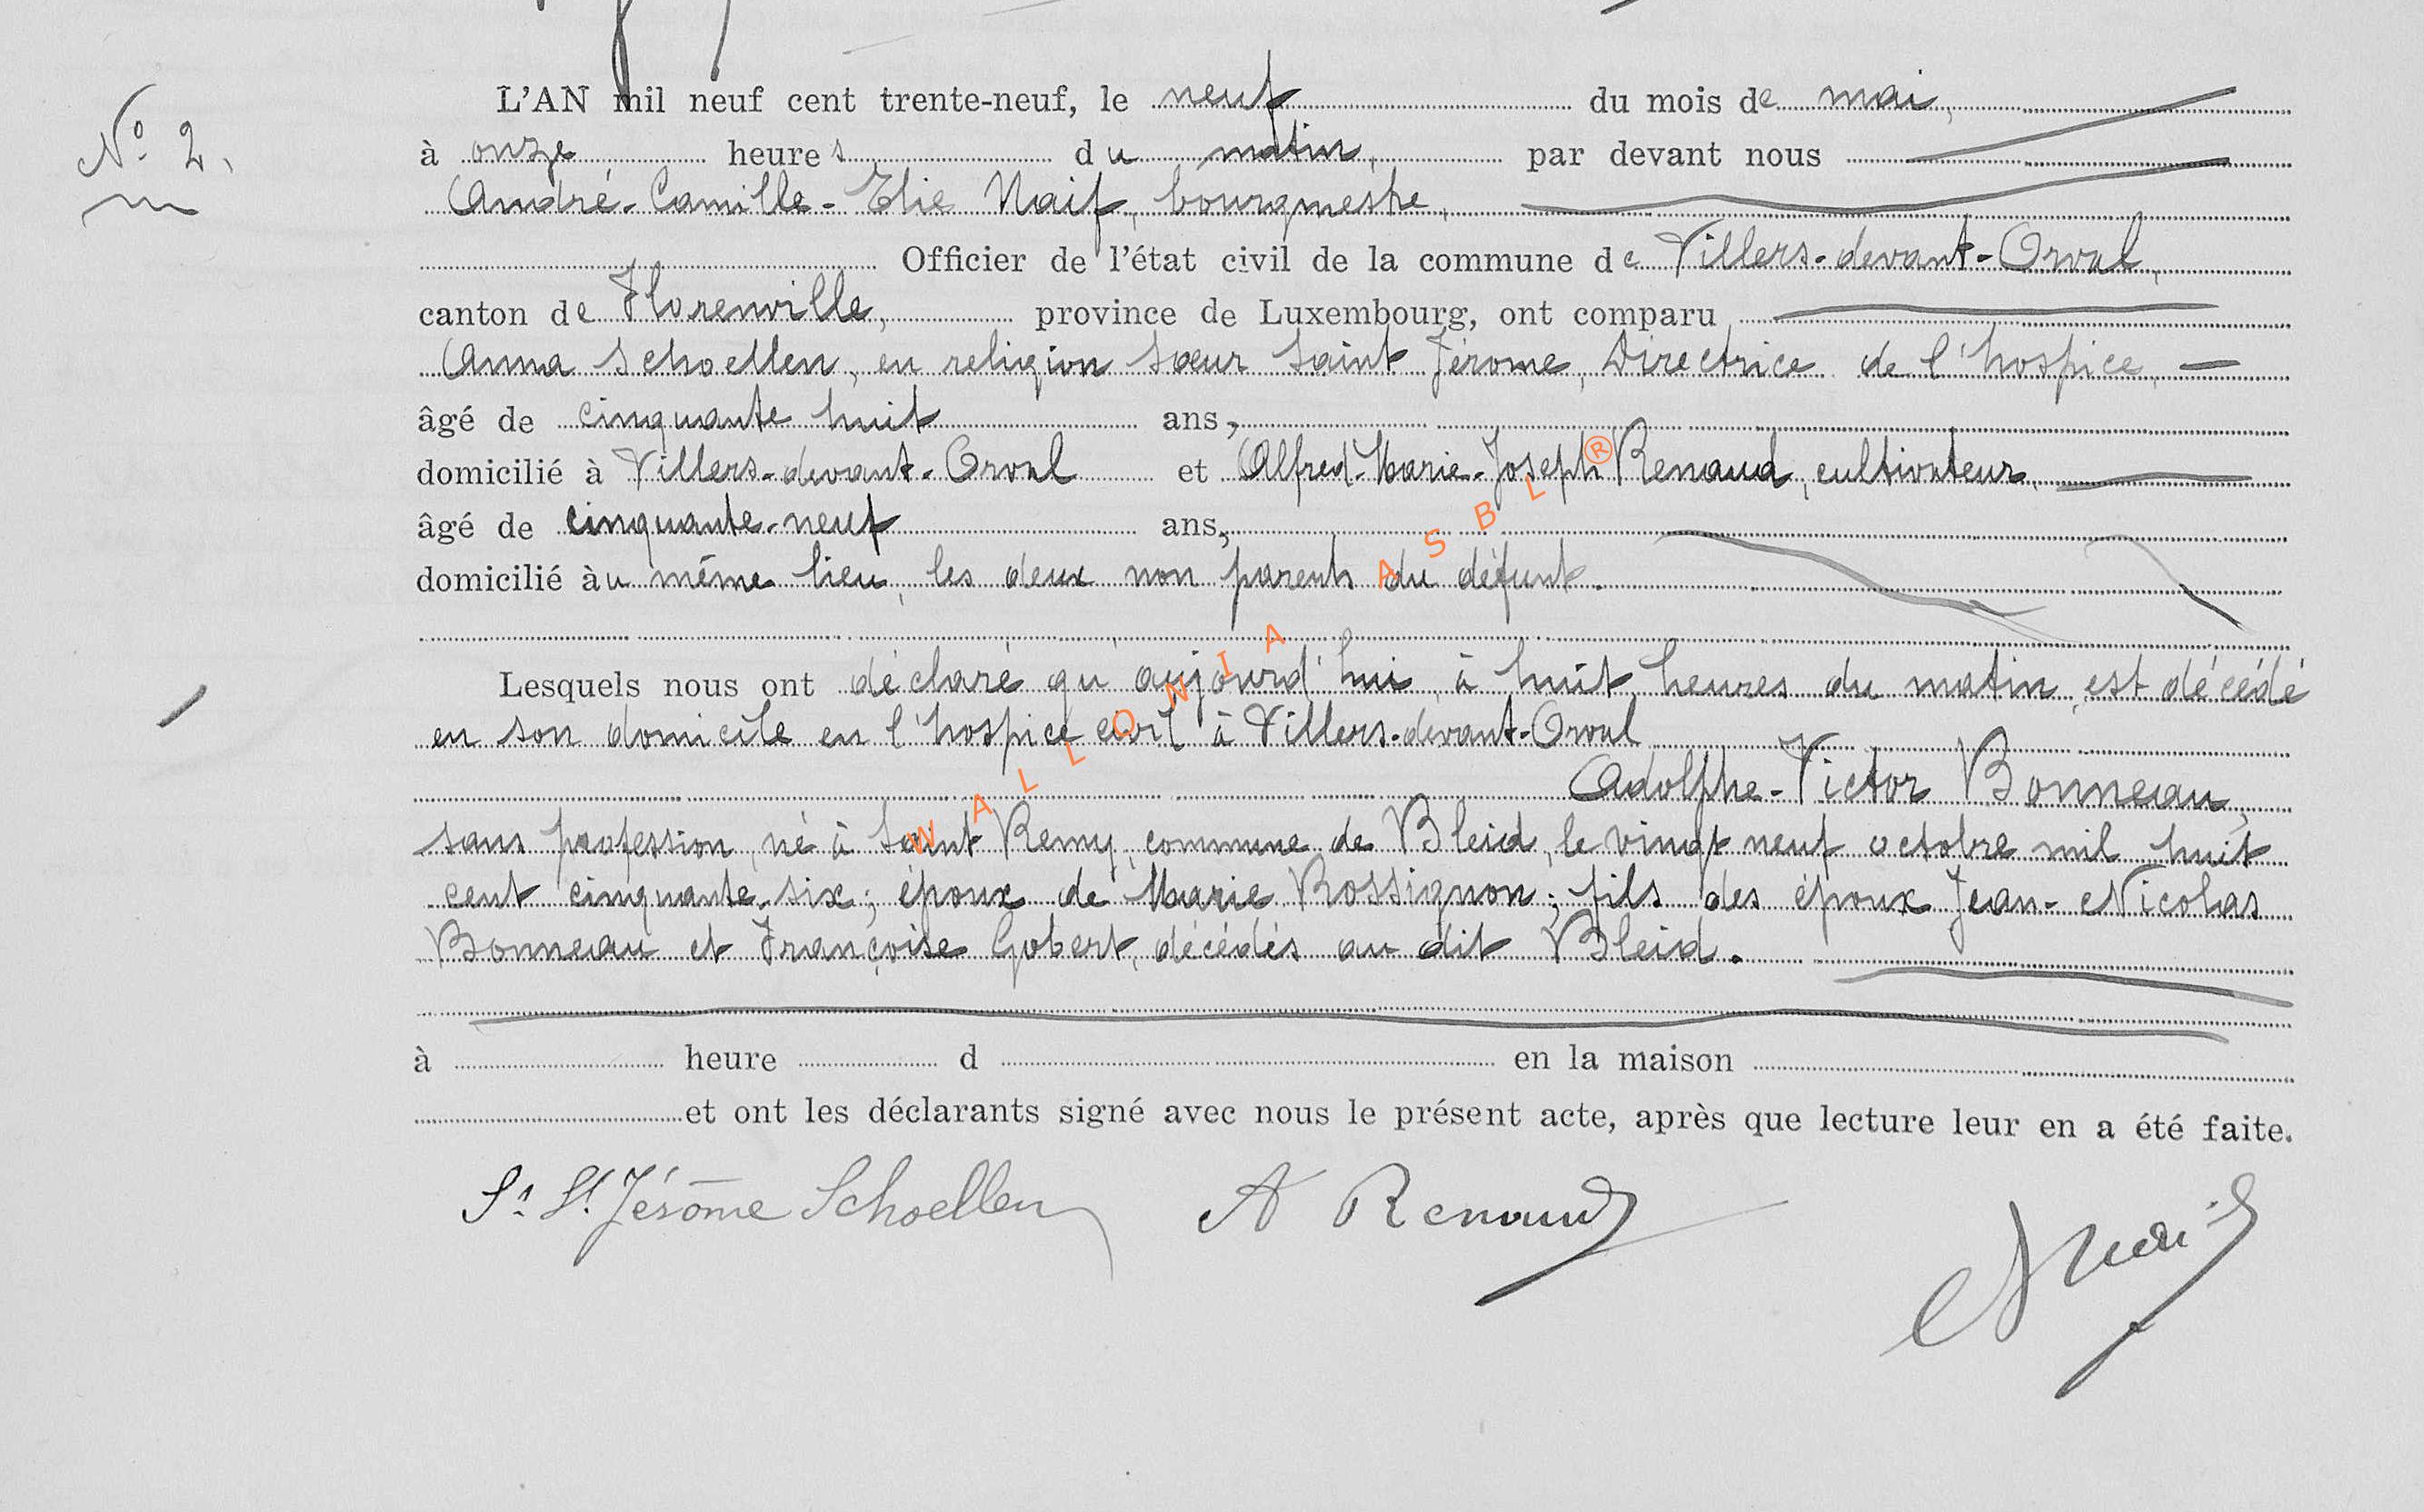 L'AN mil neuf cent trente-neuf, le neuf du mois de mai,
N° 2.
à onze heures du matin, par devant nous
André-Camille-Elie Naif, bourgmestre,
Officier de l'état civil de la commune de Villers-devant-Orval,
canton de Florenville, province de Luxembourg, ont comparu
Anna Schoellen, en religion sœur Saint Jérome, Directrice de l'hospice,
âgé de cinquante huit ans,
domicilié à Villers-devant-Orval et Alfred-Marie-Joseph Renaud, cultivateur,
âgé de cinquante-neuf ans,
domicilié àu même lieu, les deux non parents du défunt.
Lesquels nous ont déclaré qu'aujourd'hui, à huit heures du matin, est décédé
en son domicile en l'hospice civil à Villers-devant-Orval
Adolphe-Victor Bonneau,
sans profession, né à Saint Remy, commune de Bleid, le vingt neuf octobre mil huit
cent cinquante-six; époux de Marie Rossignon; fils des époux Jean-Nicolas
Bonneau et Françoise Gobert, décédés au dit Bleid.
à heure d en la maison
et ont les déclarants signé avec nous le présent acte, après que lecture leur en a été faite.
Sr St Jérôme Schoellen A Renaud Naif
WALLONIA ASBL ®